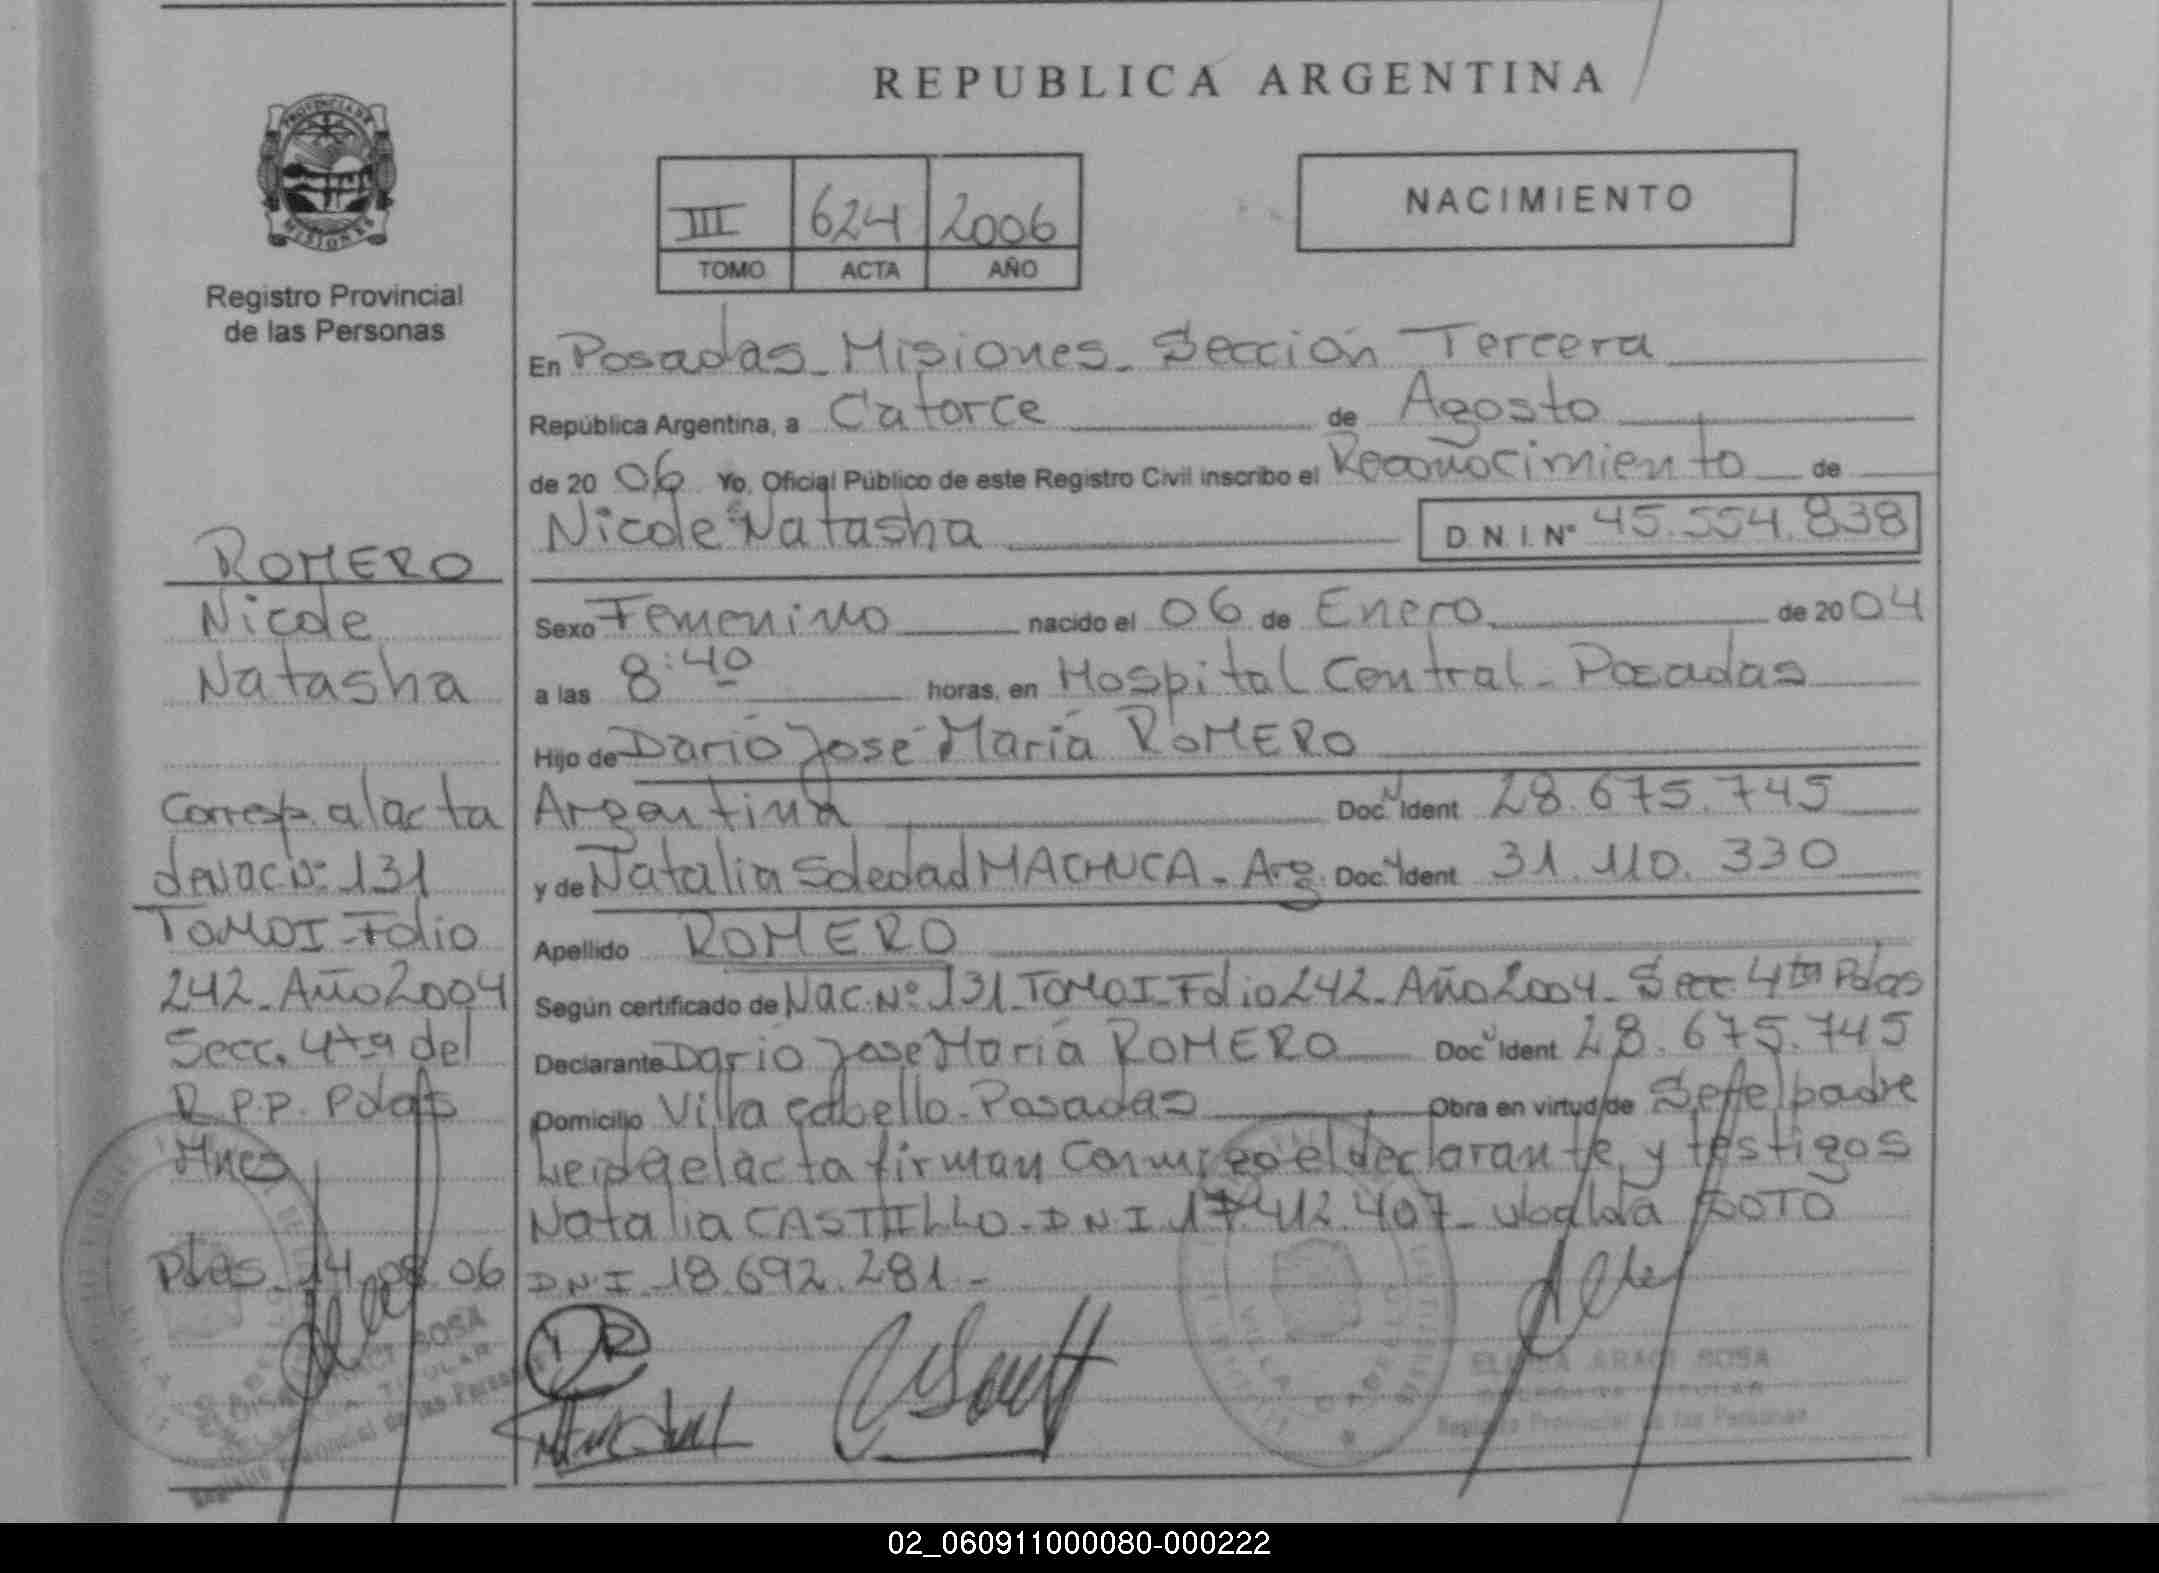 REPUBLICA ARGENTINA
PROVINCIA DE
MISIONES
Registro Provincial
de las Personas
III 624 2006
TOMO ACTA AÑO
NACIMIENTO
En Posadas - Misiones - Sección Tercera
República Argentina, a Catorce de Agosto
de 2006 Yo, Oficial Público de este Registro Civil inscribo el Reconocimiento de
Nicole Natasha D.N.I.Nº 45.554.838
Sexo Femenino nacido el 06 de Enero de 2004
a las 8:40 horas, en Hospital Central - Posadas
Hijo de Darío José María ROMERO
Argentina Doc. Ident 28.675.745
y de Natalia Soledad MACHUCA - Arg. Doc. Ident 31.110.330
Apellido ROMERO
Según certificado de Nac. Nº 131 TOMO I - Folio 242 - Año 2004 - Secc 4ta Pdas
Declarante Darío José María ROMERO Doc Ident 28.675.745
Domicilio Villa cabello - Posadas Obra en virtud de Ser el padre
Leida el acta firman conmigo el declarante y testigos
Natalia CASTILLO - D.N.I. 17.412.407 - Ubalda SOTO
D.N.I. 18.692.281 -
ROMERO
Nicole
Natasha
Corresp. al acta
de Nac Nº 131
TOMO I - Folio
242 - Año 2004
Secc. 4ta del
R.P.P. Pdas
Mnes
Pdas. 14.08.06
ARACI SOSA
TITULAR
Registro Provincial de las Personas
SOSA
TITULAR
Registro Provincial de las Personas
02_060911000080-000222